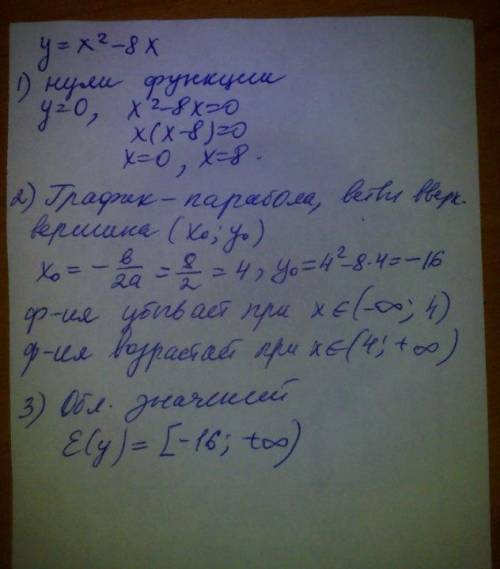 y = x² - 8x
1) нули функции
y=0, x² - 8x=0
x(x-8)=0
x=0, x=8.
2) График - парабола, ветви вверх.
вершина (x₀; y₀)
x₀ = - в/2a = 8/2 = 4, y₀ = 4² - 8·4 = -16
ф-ия убывает при x∈(-∞; 4)
ф-ия возрастает при x∈(4; +∞)
3) Обл. значений
E(y) = [-16; +∞)